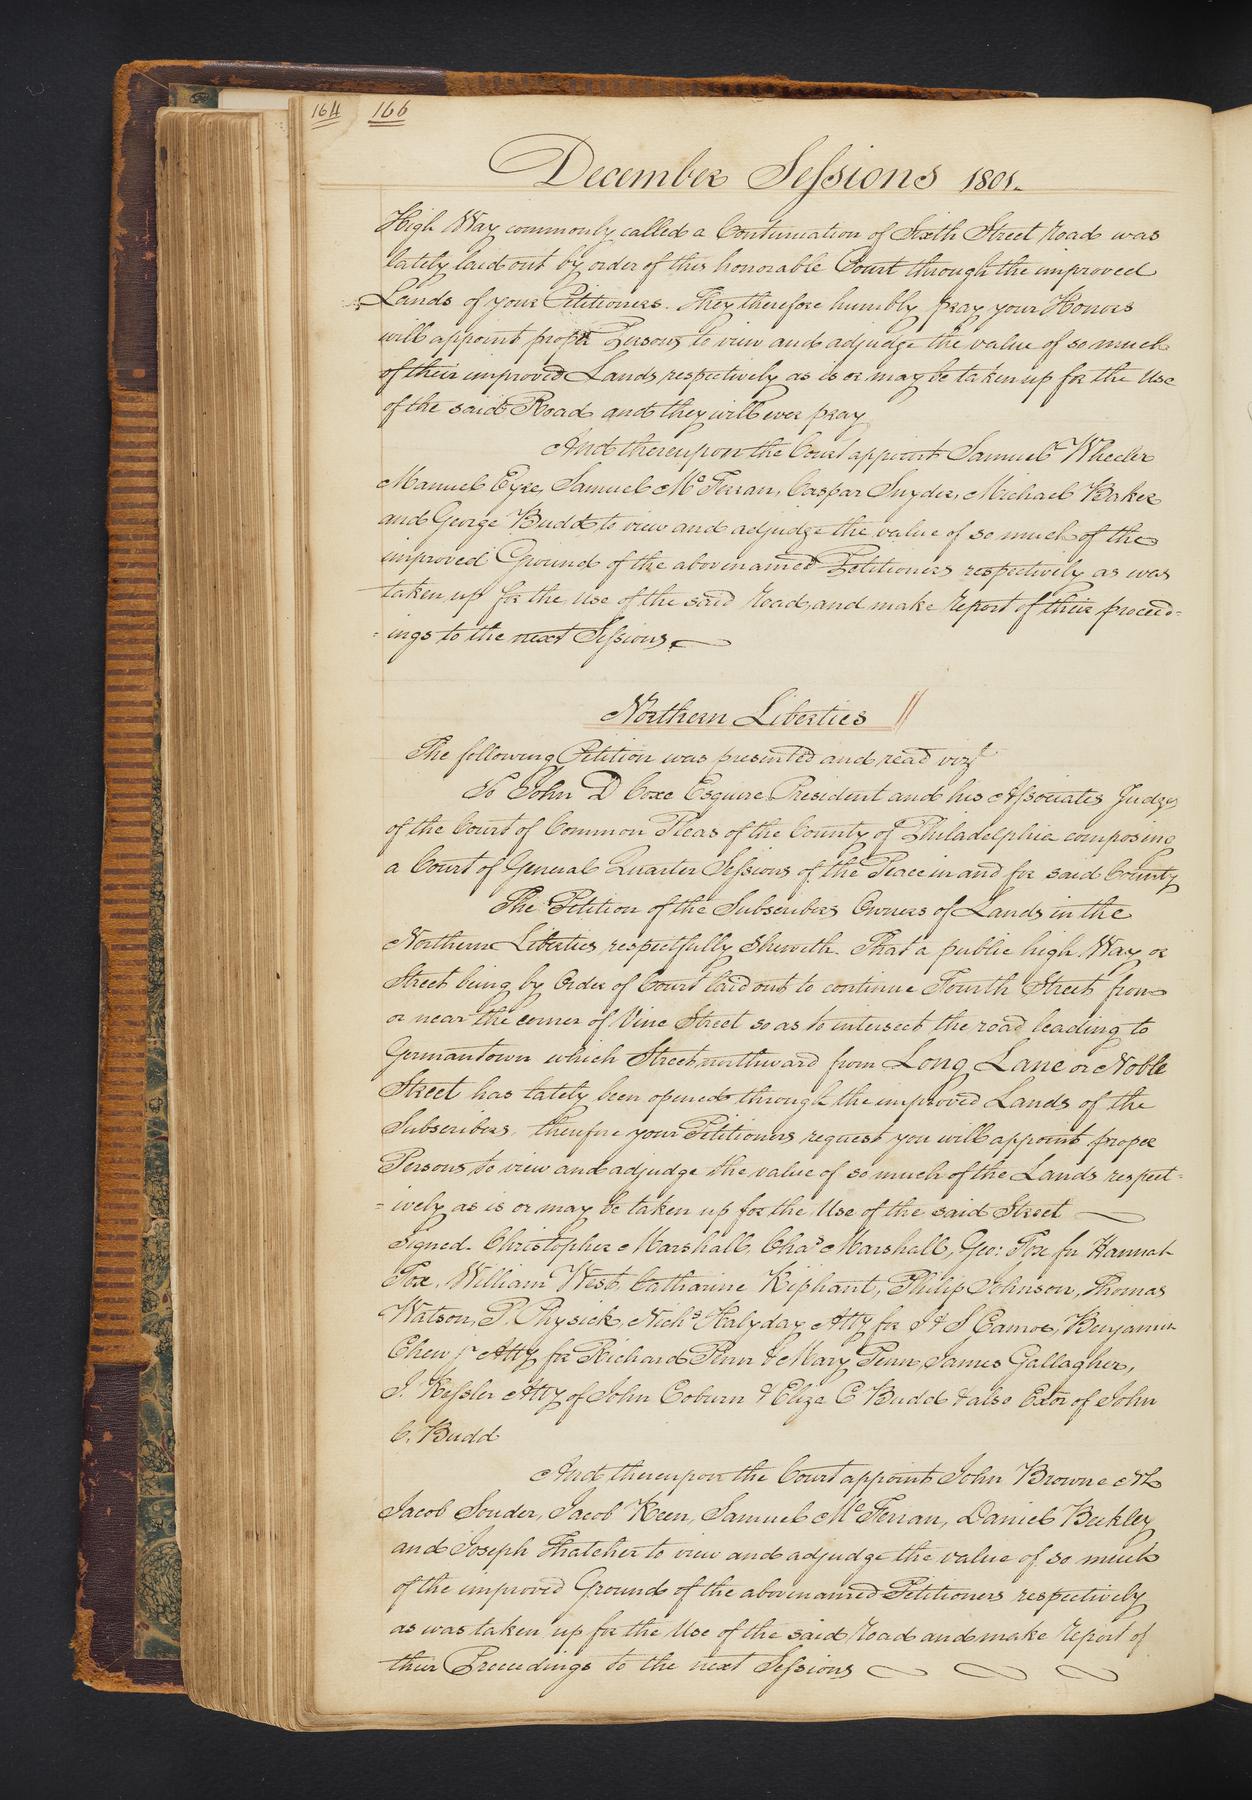 164 166
December Sessions 1801.
High Way commonly called a Continuation of Sixth Street Road was
lately laid out by order of this honorable Court through the improved
Lands of your Petitioners. They therefore humbly pray your Honors
will appoint proper Persons to view and adjudge the value of so much
of their improved Lands respectively as is or may be taken up for the Use
of the said Road and they will ever pray
And thereupon the Court appoint Samuel Wheeler
Manuel Eyre, Samuel Mc Ferran, Caspar Snyder, Michael Baker
and George Budd to view and adjudge the value of so much of the
improved Ground of the abovenamed Petitioners respectively as was
taken up for the Use of the said Road, and make report of their proceed=
=ings to the next Sessions.
Northern Liberties
The following Petition was presented and read vizt
To John D Coxe Esquire President and his Associates Judges
of the Court of Common Pleas of the County of Philadelphia composing
a Court of General Quarter Sessions of the Peace in and for said County
The Petition of the Subscribers Owners of Lands in the
Northern Liberties respectfully Sheweth. That a public high Way or
Street being by Order of Court laid out to continue Fourth Street from
or near the corner of Vine Street so as to intersect the road leading to
Germantown which Street northward from Long Lane or Noble
Street has lately been opened through the improved Lands of the
Subscribers. therefore your Petitioners request you will appoint proper
Persons to view and adjudge the value of so much of the Lands respect=
=ively as is or may be taken up for the Use of the said Street
Signed. Christopher Marshall, Chas Marshall, Geo: Fox for Hannah
Fox, William West, Catharine Kiphant, Philip Johnson, Thomas
Watson, P. Physick, Nichs Halyday Atty for J & S Eamos, Benjamin
Chew jr Atty for Richard Penn & Mary Penn, James Gallagher,
J. Kessler Atty of John Coburn & Eliza C Budd & also Exor of John
C. Budd
And thereupon the Court appoint John Browne NL
Jacob Souder, Jacob Keen, Samuel Mc Ferran, Daniel Beckley
and Joseph Thatcher to view and adjudge the value of so much
of the improved Ground of the abovenamed Petitioners respectively
as was taken up for the Use of the said Road and make report of
their Proceedings to the next Sessions